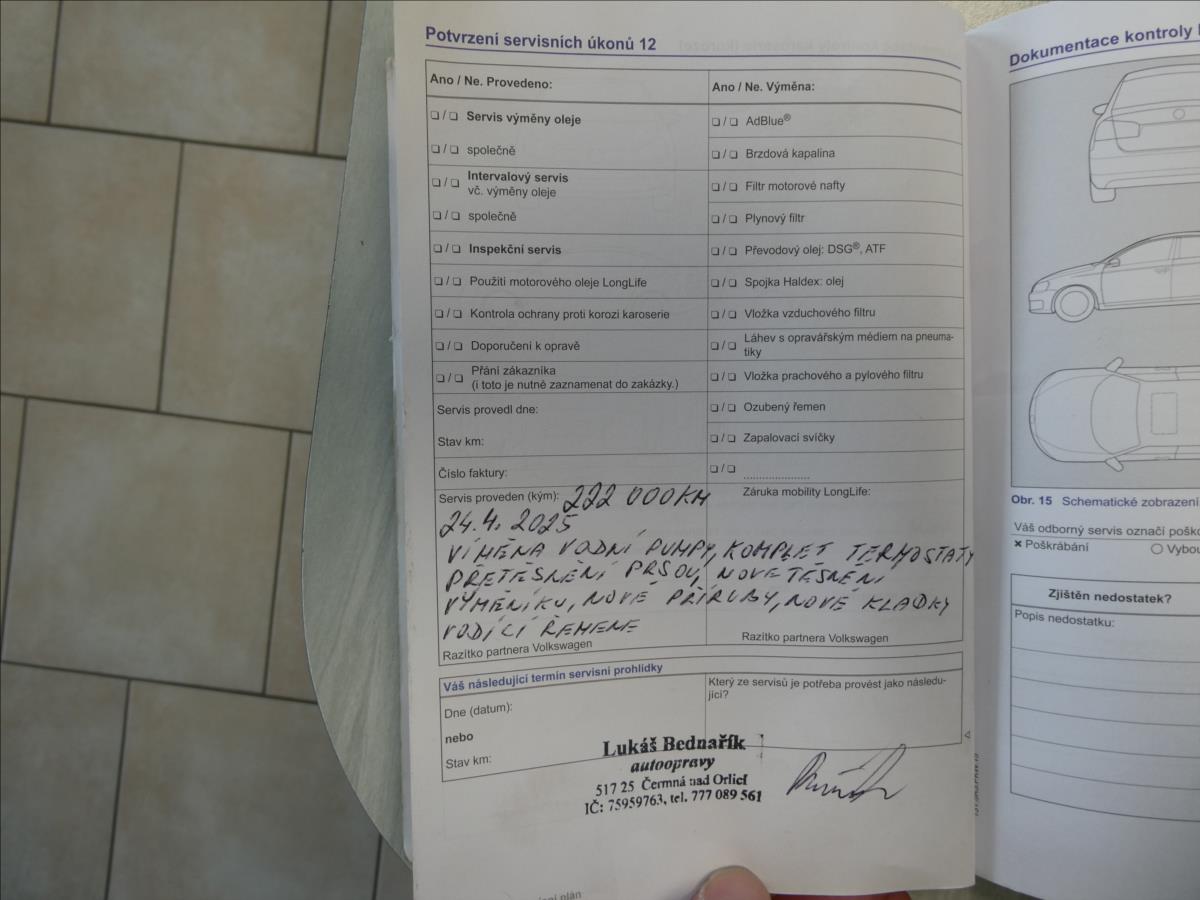 Potvrzení servisních úkonů 12
Ano / Ne. Provedeno:
❑ / ❑ Servis výměny oleje
❑ / ❑ společně
❑ / ❑ Intervalový servis
vč. výměny oleje
❑ / ❑ společně
❑ / ❑ Inspekční servis
❑ / ❑ Použití motorového oleje LongLife
❑ / ❑ Kontrola ochrany proti korozi karoserie
❑ / ❑ Doporučení k opravě
❑ / ❑ Přání zákazníka
(i toto je nutné zaznamenat do zakázky.)
Servis provedl dne:
Stav km:
Číslo faktury:
Ano / Ne. Výměna:
❑ / ❑ AdBlue®
❑ / ❑ Brzdová kapalina
❑ / ❑ Filtr motorové nafty
❑ / ❑ Plynový filtr
❑ / ❑ Převodový olej: DSG®, ATF
❑ / ❑ Spojka Haldex: olej
❑ / ❑ Vložka vzduchového filtru
❑ / ❑ Láhev s opravářským médiem na pneuma-
tiky
❑ / ❑ Vložka prachového a pylového filtru
❑ / ❑ Ozubený řemen
❑ / ❑ Zapalovací svíčky
❑ / ❑ ......................
Servis proveden (kým): 222 000KM
Záruka mobility LongLife:
24.4. 2025
VÍMĚNA VODNÍ PUMPY, KOMPLET TERMOSTATY
PŘETĚSNĚNÍ PRSOU, NOVE TĚSNĚNÍ
VÝMĚNÍKU, NOVÉ PŘÍRUBY, NOVÉ KLADKY
VODÍCÍ ŘEMENE
Razítko partnera Volkswagen
Razítko partnera Volkswagen
Váš následující termín servisní prohlídky
Dne (datum):
nebo
Stav km:
Který ze servisů je potřeba provést jako následu-
jící?
Lukáš Bednařík
autoopravy
517 25 Čermná nad Orlicí
IČ: 75959763, tel. 777 089 561
plán
Dokumentace kontroly
Obr. 15 Schematické zobrazení
Váš odborný servis označí
✖ Poškrábání
Zjištěn nedostatek?
Popis nedostatku: